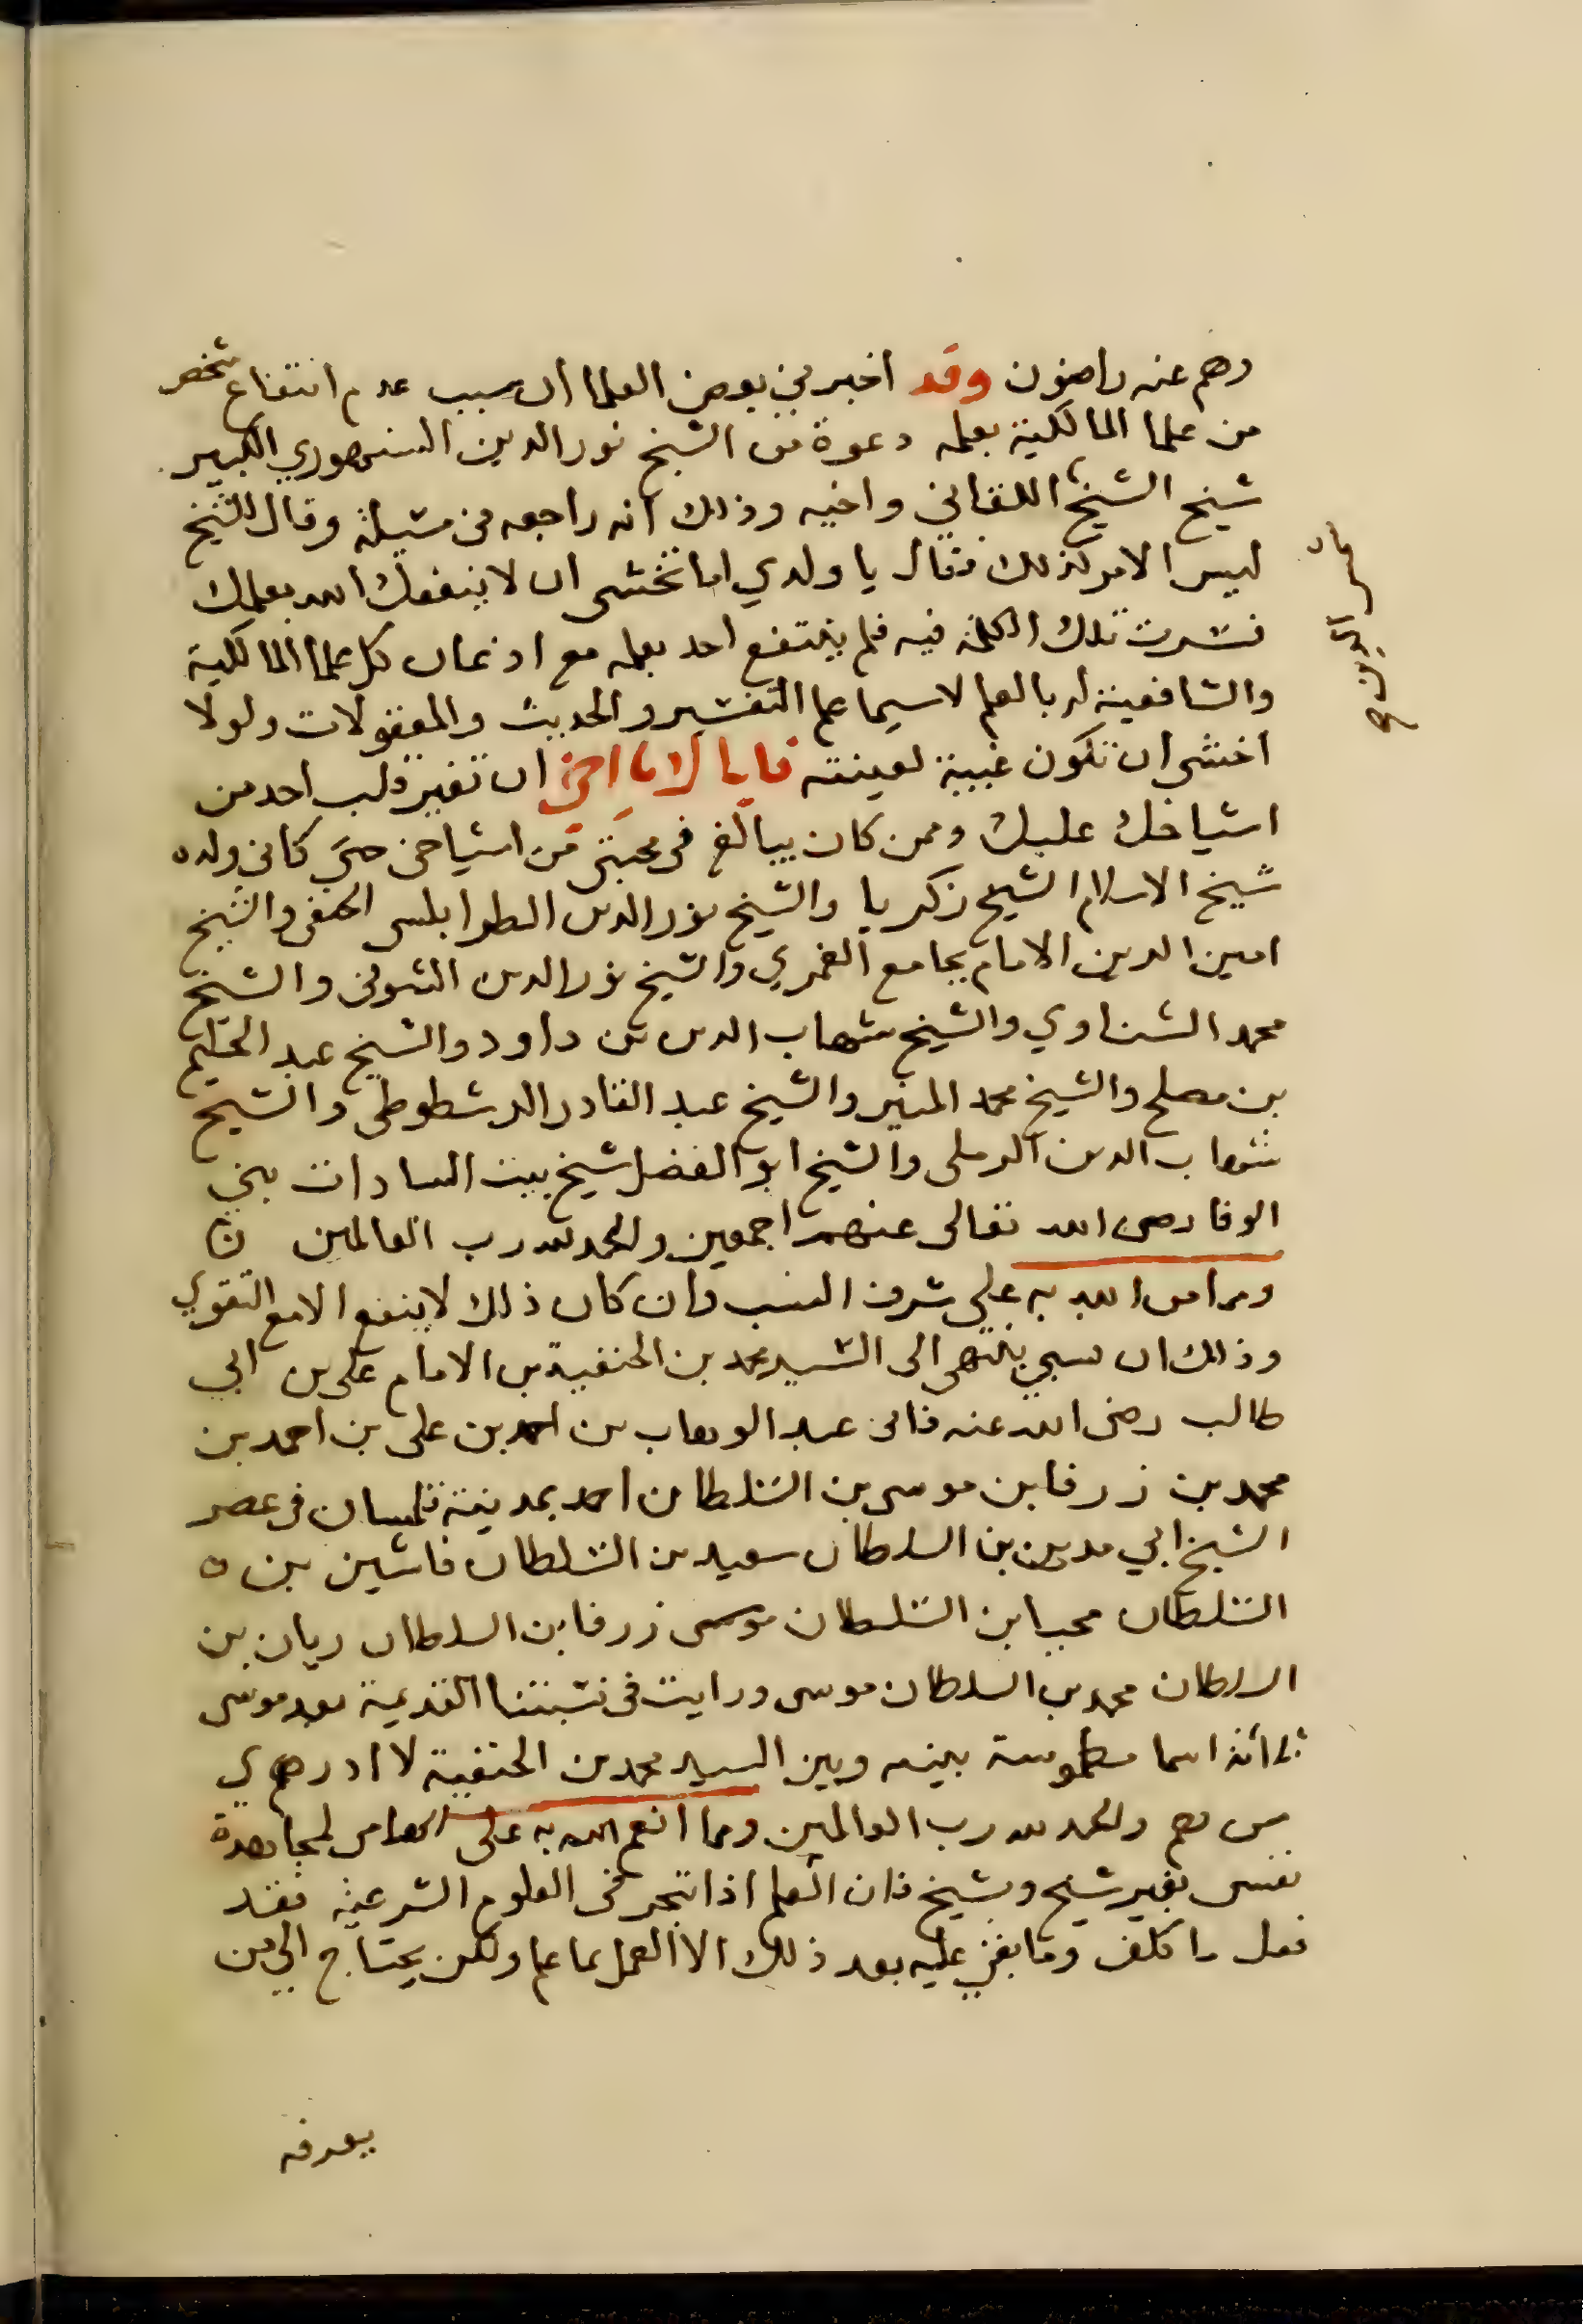 وهم عنه راضون وقد اخبرني بعض العلما ان سبب عدم انتفاع شخص
من علما المالكية بعلمه دعوة من الشيخ نور الدين السنهوري الكبير
شيخ الشيخ اللقاني واخيه وذلك انه راجعه في مسئلة وقال الشيخ
ليس الامر كذلك فقال يا ولدي اما تخشى ان لا ينفعك الله بعلمك
فسرت تلك الكلمة فيه فلم ينتفع احد بعلمه مع اذعان كل علما المالكية
والشافعية له بالعلم لاسيما علم التفسير والحديث والمعقولات ولولا
اخشى ان تكون غيبة لعينته فاياك يا اخي ان تغير قلب احد من
اشياخك عليك وممن كان يبالغ في محبتي من اشياخي حتى كاني ولده
شيخ الاسلام الشيخ زكريا والشيخ نور الدين الطرابلسي الحنفي والشيخ
امين الدين الامام بجامع الغمري والشيخ نور الدين الشوني والشيخ
محمد الشناوي والشيخ شهاب الدين بن داود والشيخ عبد الحليم
بن مصلح والشيخ محمد المنير والشيخ عبد القادر الدشطوطي والشيخ
شهاب الدين الرملي والشيخ ابو الفضل شيخ بيت السادات بني
الوفا رضى الله تعالى عنهم اجمعين والحمد لله رب العالمين
ومما من الله به علي شرف النسب وان كان ذلك لا ينفع الا مع التقوي
وذلك ان نسبي ينتهى الى السيد محمد بن الحنفية بن الامام على بن ابي
طالب رضى الله عنه فانى عبد الوهاب بن احمد بن على بن احمد بن
محمد بن زرفا بن موسى بن السلطان احمد بمدينة تلمسان في عصر
الشيخ ابي مدين بن السلطان سعيد بن السلطان فاشين بن
السلطان محيا بن السلطان موسى زرفا بن السلطان ريان بن
السلطان محمد بن السلطان موسى ورايت في نسبتنا القديمة بعد موسى
ثلاثة اسما مطموسة بينه وبين السيد محمد بن الحنفية لا ادرهم ي
من هم والحمد لله رب العالمين ومما انعم الله به على الهامى لمجاهدة
نفسى بغير شيخ وبشيخ فان العلم اذا تبحر في العلوم الشرعية فقد
فعل ما كلف وما بقي عليه بعد ذلك الا العمل بما علم ولكن يحتاج الى من
يعرفه